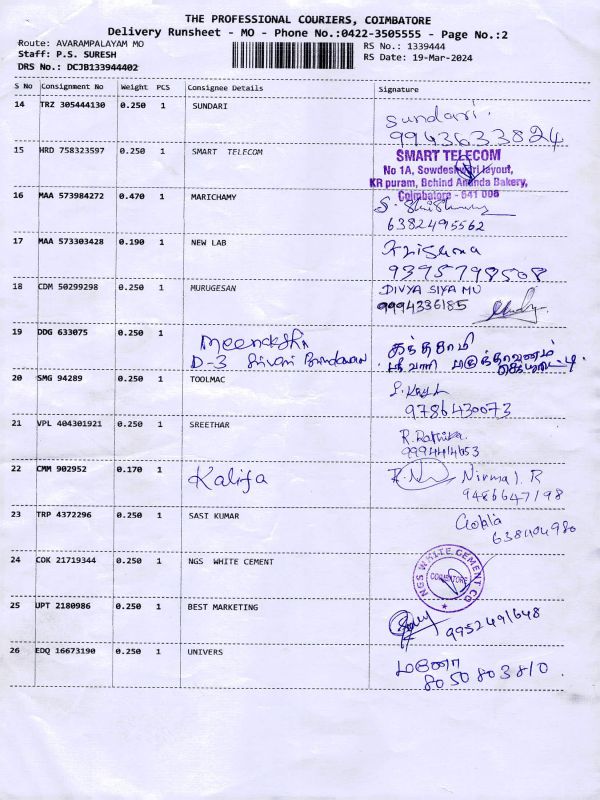 THE PROFESSIONAL COURIERS, COIMBATORE
Delivery Runsheet - MO - Phone No.:0422-3505555 - Page No.:2
Route: AVARAMPALAYAM MO
Staff: P.S. SURESH
DRS No.: DCJB133944402
RS No.: 1339444
RS Date: 19-Mar-2024
S No Consignment No Weight PCS Consignee Details Signature
14 TRZ 305444130 0.250 1 SUNDARI
Sundari.
9943633824
15 HRD 758323597 0.250 1 SMART TELECOM
SMART TELECOM
No 1A, Sowdeshwari layout,
KR puram, Behind Ananda Bakery,
Coimbatore - 641 006
16 MAA 573984272 0.470 1 MARICHAMY
6382495562
17 MAA 573303428 0.190 1 NEW LAB
Krishna
9395798508
18 CDM 50299298 0.250 1 MURUGESAN
DIVYA SIYA MU
9994336185
19 DDG 633075 0.250 1
Meenakshi
D-3 Srivari Brindavan
கந்தசாமி
ஸ்ரீவாரி
20 SMG 94289 0.250 1 TOOLMAC
9786430073
21 VPL 404301921 0.250 1 SREETHAR
R. Rathika.
9994414653
22 CMM 902952 0.170 1 Kalifa
Nirmal. R
9486647198
23 TRP 4372296 0.250 1 SASI KUMAR
24 COK 21719344 0.250 1 NGS WHITE CEMENT
NGS WHITE CEMENT CO
COIMBATORE
25 UPT 2180986 0.250 1 BEST MARKETING
9952491648
26 EDQ 16673190 0.250 1 UNIVERS
8050803810.